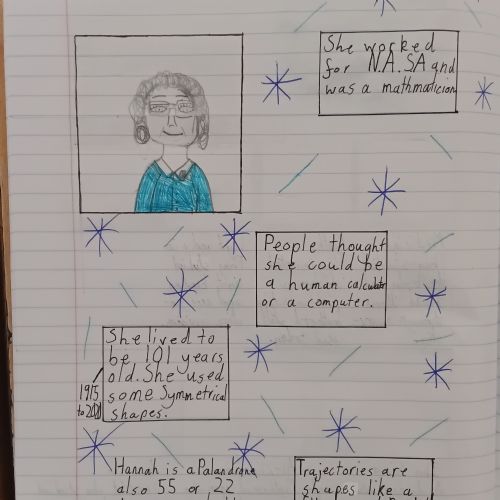 She worked
for N.A.SA and
was a mathmaticion
People thought
she could be
a human calculator
or a computer.
She lived to
be 101 years
old. She used
some Symmetrical
shapes.
1915
to
Hannah is a Palandrone
also 55 or 22
Trajectories are
shapes like a